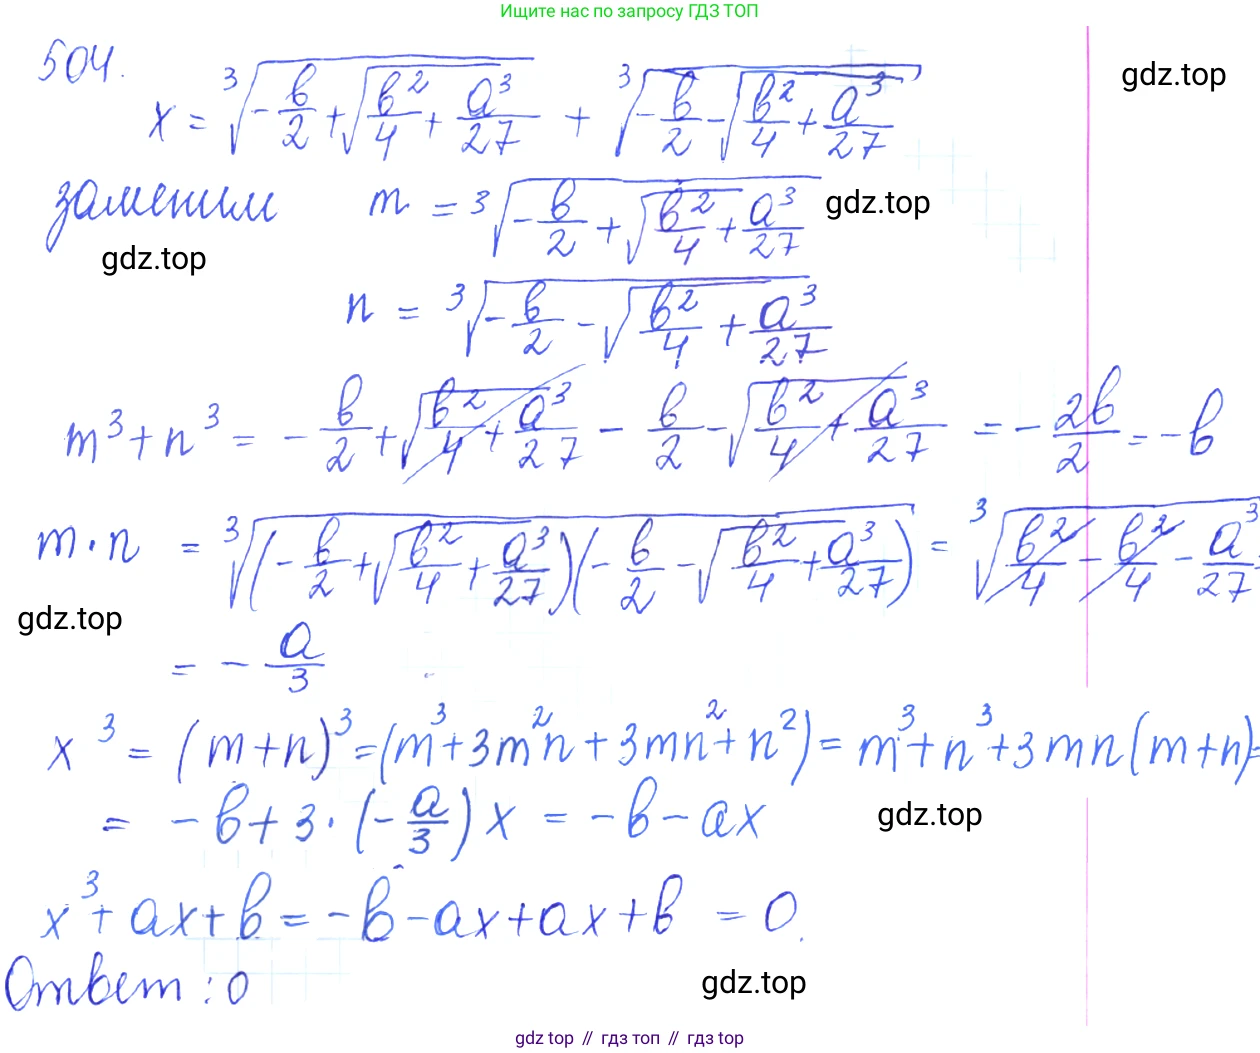 Ищите нас по запросу ГДЗ ТОП
504.
x = ∛(-b/2 + √(b²/4 + a³/27)) + ∛(-b/2 - √(b²/4 + a³/27))
gdz.top
заменим m = ∛(-b/2 + √(b²/4 + a³/27))
gdz.top
gdz.top
n = ∛(-b/2 - √(b²/4 + a³/27))
m³ + n³ = -b/2 + √(b²/4 + a³/27) - b/2 - √(b²/4 + a³/27) = -2b/2 = -b
m · n = ∛((-b/2 + √(b²/4 + a³/27))(-b/2 - √(b²/4 + a³/27))) = ∛(b²/4 - b²/4 - a³/27)
gdz.top
= -a/3
x³ = (m+n)³ = (m³ + 3m²n + 3mn² + n²) = m³ + n³ + 3mn(m+n) =
= -b + 3 · (-a/3)x = -b - ax
gdz.top
x³ + ax + b = -b - ax + ax + b = 0.
Ответ: 0
gdz.top
gdz top // гдз топ // gdz top